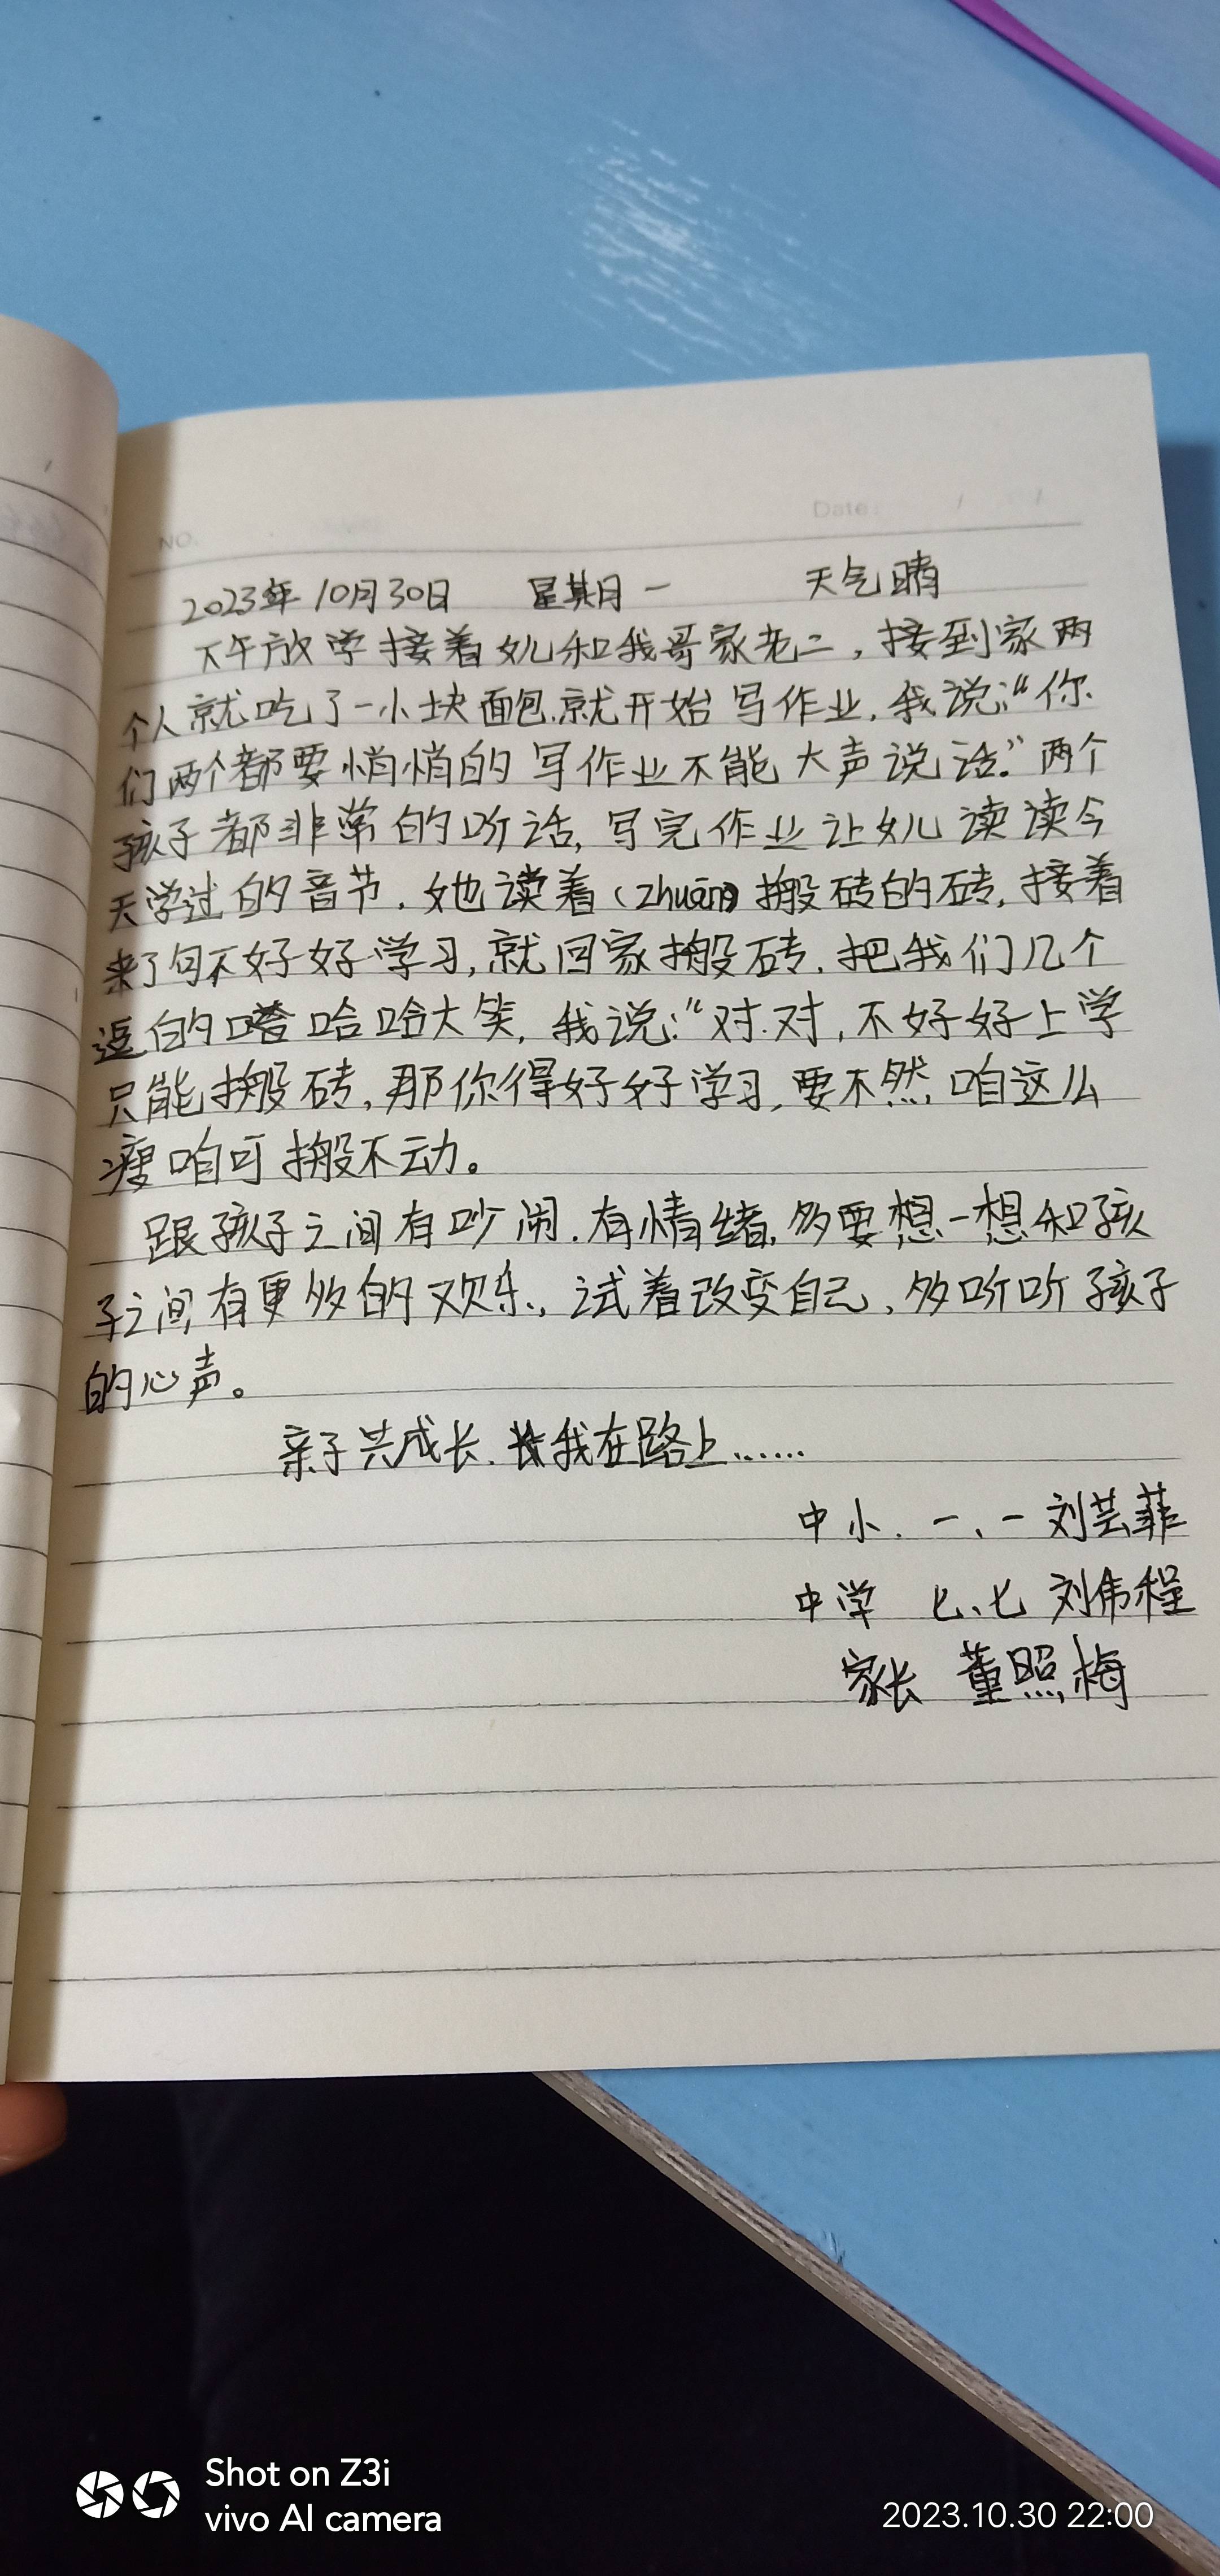 NO.
Date:
2023年10月30日 星期一 天气晴
下午放学接着女儿和我哥家老二，接到家两
个人就吃了一小块面包.就开始写作业.我说:“你
们两个都要悄悄的写作业不能大声说话.”两个
孩子都非常的听话,写完作业让女儿读读今
天学过的音节.她读着(zhuān)搬砖的砖,接着
来了句不好好学习,就回家搬砖.把我们几个
逗的哈哈大笑,我说:“对.对,不好好上学
只能搬砖,那你得好好学习,要不然,咱这么
瘦咱可搬不动。
跟孩子之间有吵闹.有情绪,多要想一想和孩
子之间有更多的欢乐,试着改变自己,多听听孩子
的心声。
亲子共成长.我在路上......
中小.一、一刘芸菲
中学 七、七 刘伟程
家长 董照梅
Shot on Z3i
vivo AI camera
2023.10.30 22:00